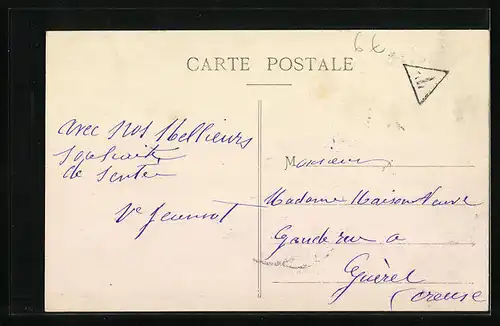 6€
CARTE POSTALE
avec nos Mellieurs
souhaits
de sente
Monsieur
Madame Maison Neuve
Grande rue a
Guéret
Creuse